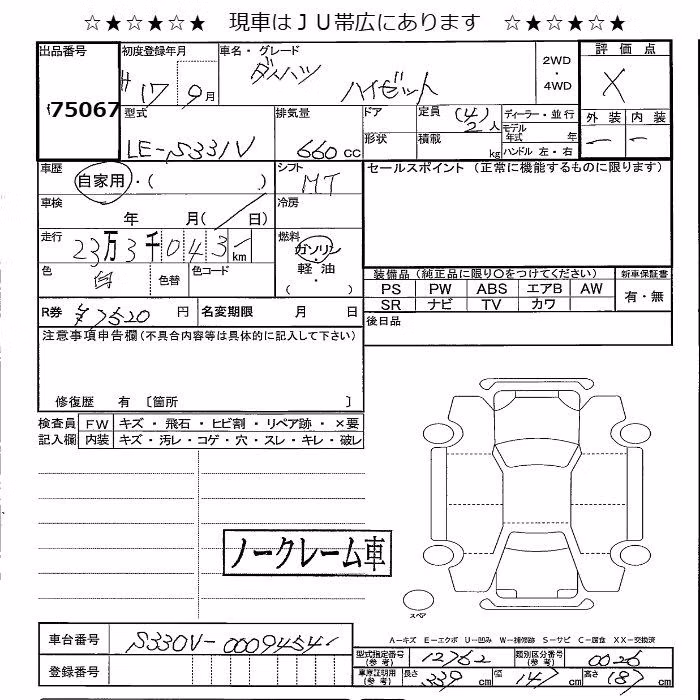 ☆★☆★☆★ 現車はＪＵ帯広にあります ☆★☆★☆★
出品番号 初度登録年月 車名・グレード 2WD・4WD 評価点
75067 H17 9月 ダイハツ ハイゼット X
型式 排気量 ドア 定員 (4) 2人 ディーラー・並行 外装 内装
LE-S331V 660cc 形状 積載 kg モデル年式 年 ハンドル 左・右 － －
車歴 自家用・( ) シフト MT セールスポイント (正常に機能するものに限ります)
車検 年 月( 日) 冷房
走行 23万3千043km 燃料 ガソリン 軽油 ・( )
色 白 色替 色コード 装備品 (純正品に限り○をつけてください) 新車保証書
PS PW ABS エアB AW 有・無
SR ナビ TV カワ
R券 ¥7520円 名変期限 月 日 後日品
注意事項申告欄(不具合内容等は具体的に記入して下さい)
修復歴 有 〔箇所 〕
検査員 FW キズ・飛石・ヒビ割・リペア跡・×要
記入欄 内装 キズ・汚レ・コゲ・穴・スレ・キレ・破レ
ノークレーム車
スペア
A－キズ E－エクボ U－凹み W－補修跡 S－サビ C－腐食 XX－交換済
車台番号 S330V-0009454
型式指定番号(参考) 12762 類別区分番号(参考) 0026
登録番号 車庫証明用(参考) 長さ 339cm 幅 147cm 高さ 187cm